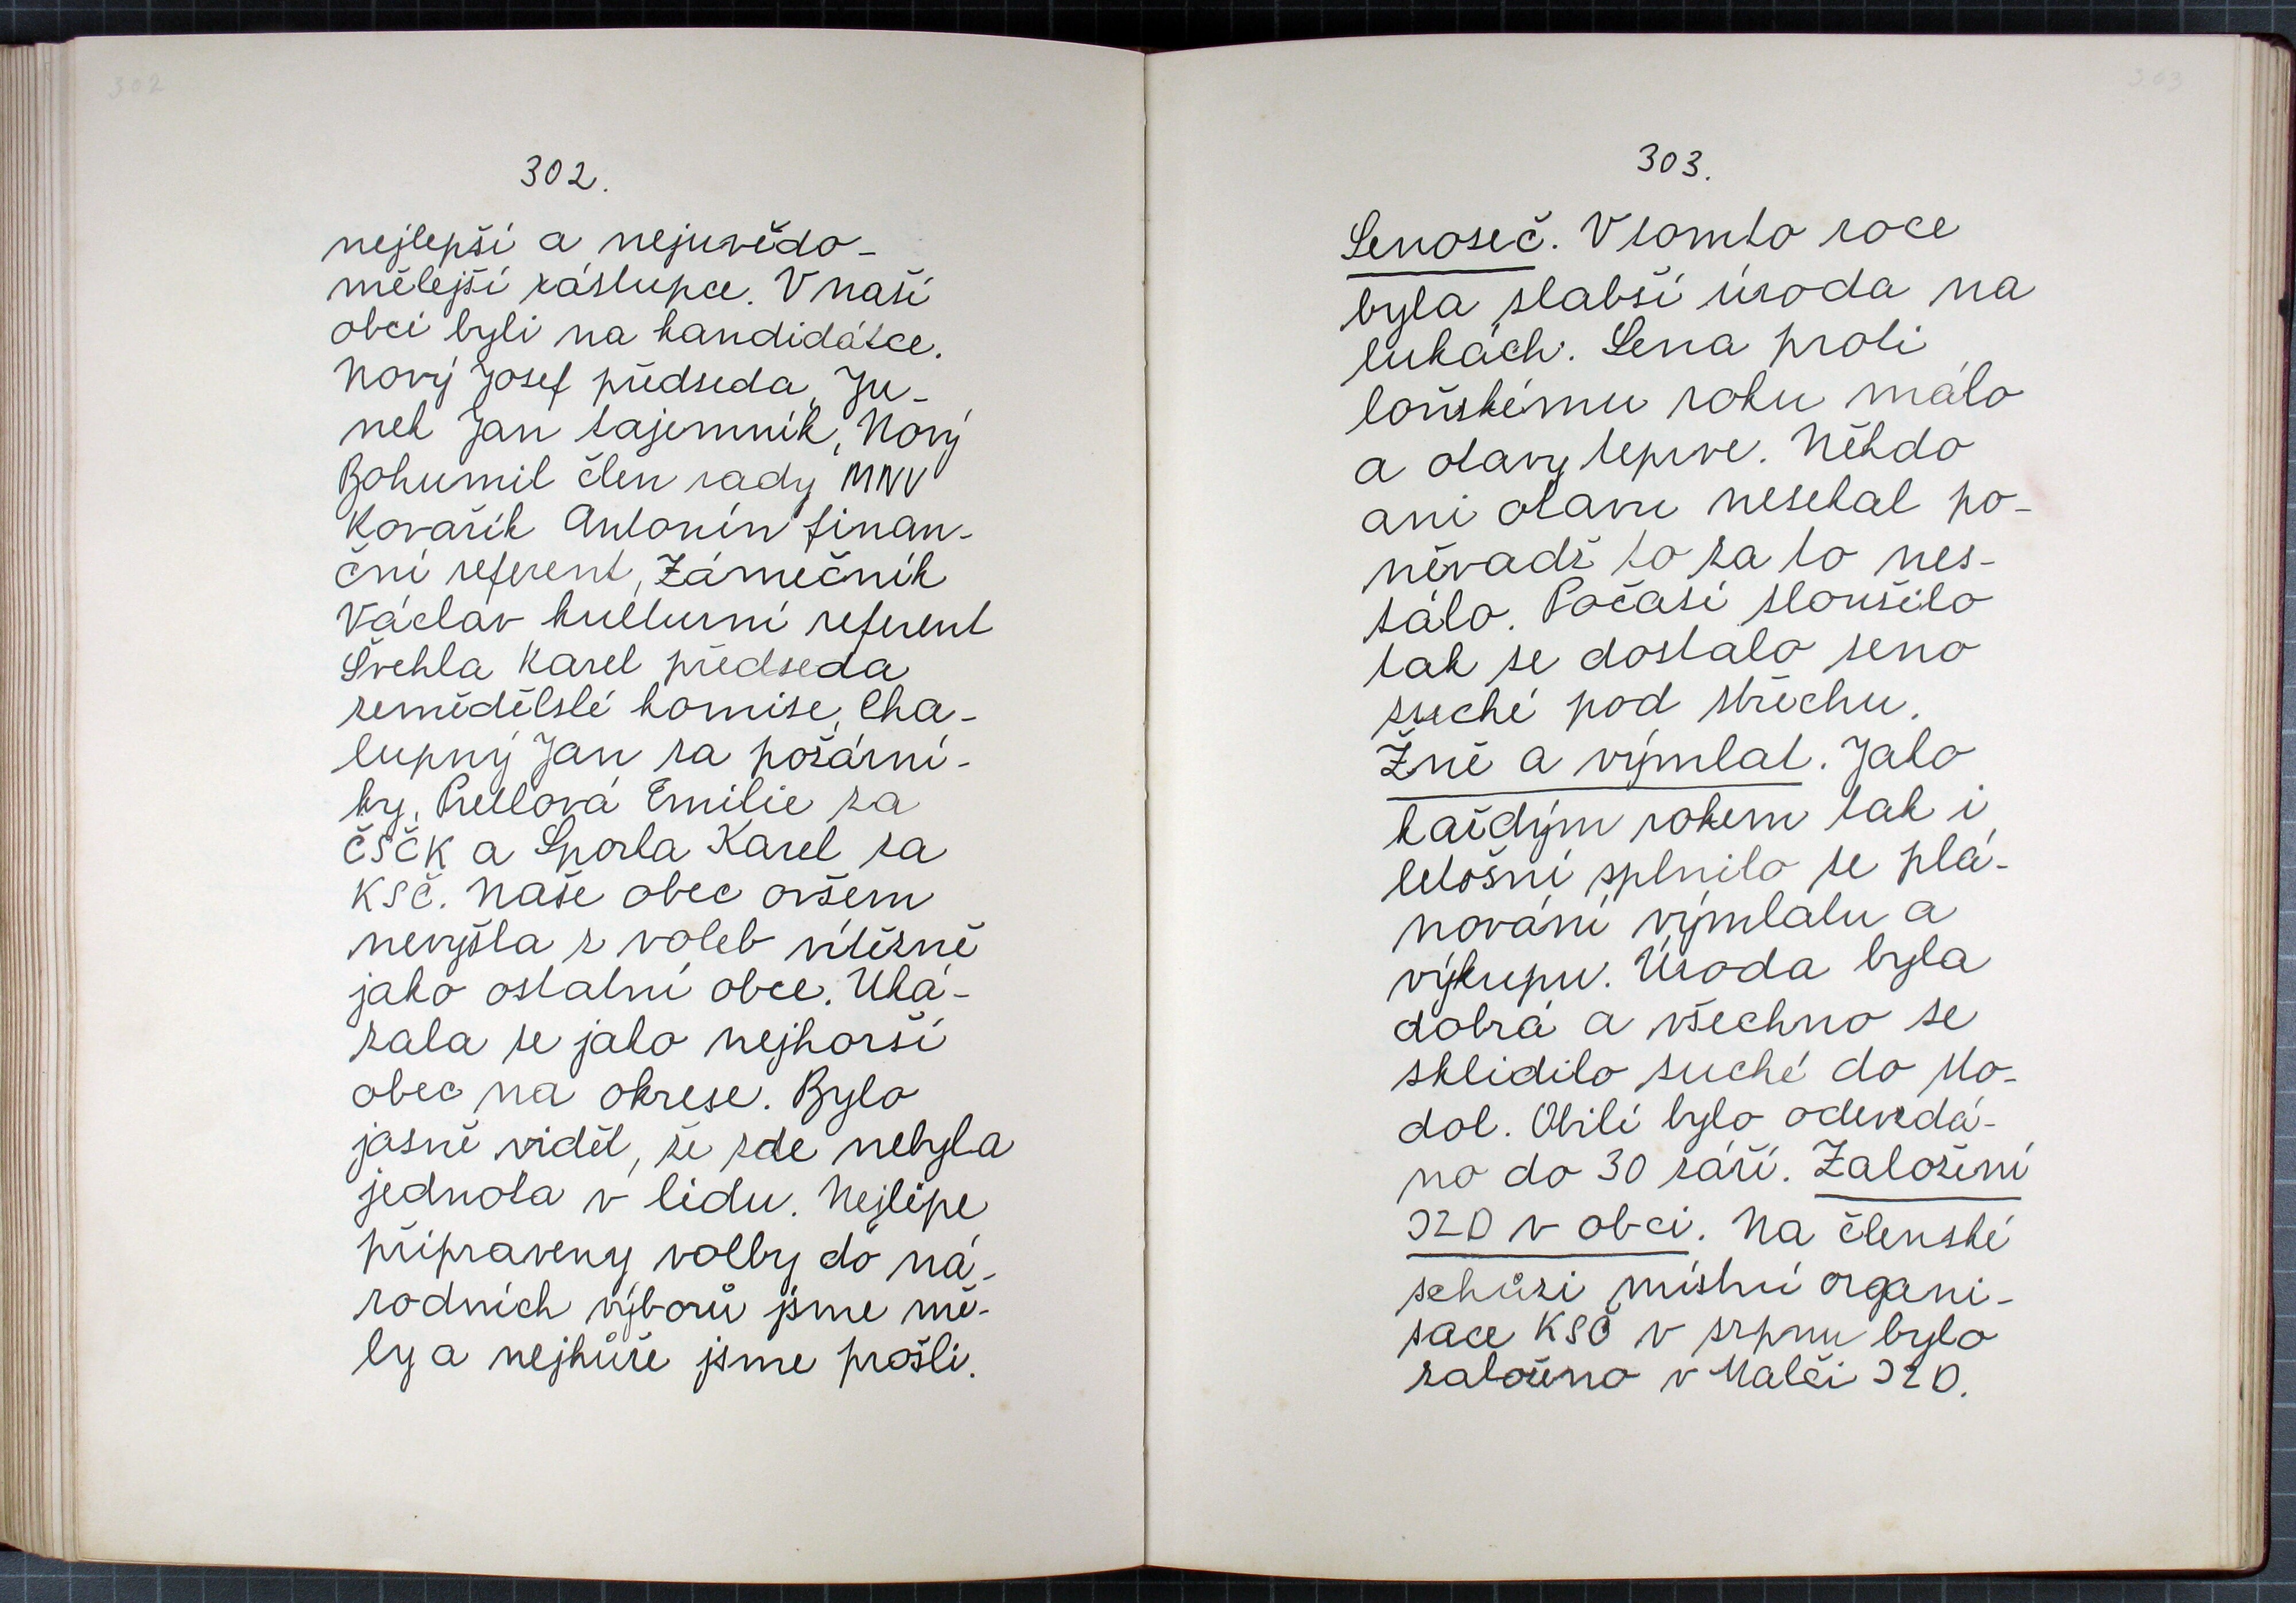 302
302.
nejlepší a nejuvědo-
mělejší zástupce. V naší
obci byli na kandidátce.
Nový Josef předseda, Ju-
nek Jan tajemník, Nový
Bohumil člen rady MNV
Kovařík Antonín finan-
ční referent, Zámečník
Václav kulturní referent
Švehla Karel předseda
zemědělslé komise, Cha-
lupný Jan za požární-
ky, Emilie za
ČSČK a Sporla Karel za
KSČ. Naše obec ovšem
nevyšla z voleb vítězně
jako ostatní obce. Uká-
zala se jako nejhorší
obec na okrese. Bylo
jasně vidět, že zde nebyla
jednota v lidu. Nejlépe
připraveny volby do ná-
rodních výborů jsme mě-
ly a nejhůře jsme prošli.
303
303.
Senoseč. V tomto roce
byla slabší úroda na
lukách. Sena proti
loňskému roku málo
a otavy teprve. Někdo
ani otavu nesekal po-
něvadž to za to nes-
tálo. Počasí sloužilo
tak se dostalo seno
suché pod střechu.
Žně a výmlat. Jako
každým rokem tak i
letošní splnilo se plá-
nování výmlatu a
výkupu. Úroda byla
dobrá a všechno se
sklidilo suché do sto-
dol. Obilí bylo odevzdá-
no do 30 září. Založení
JZD v obci. Na členské
schůzi místní organi-
sace KSČ v srpnu bylo
založeno v Malči JZD.